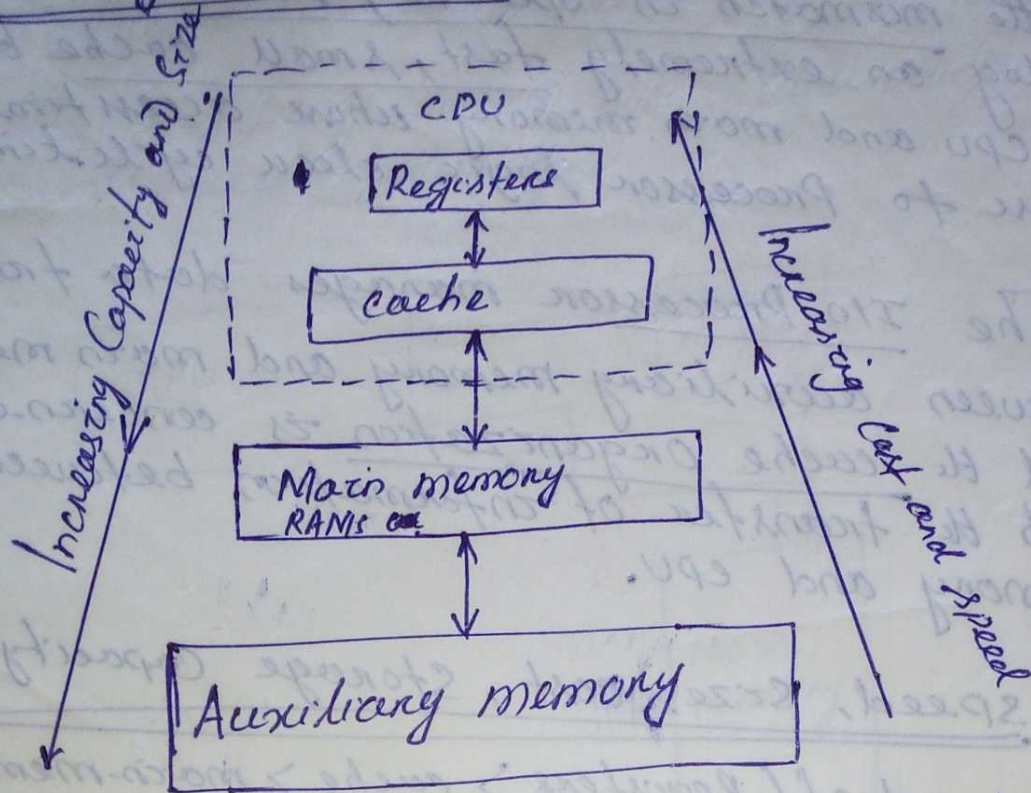 Increasing Capacity and Size
CPU
Registers
cache
Main memory
RAMs
Auxiliary memory
Increasing cost and speed